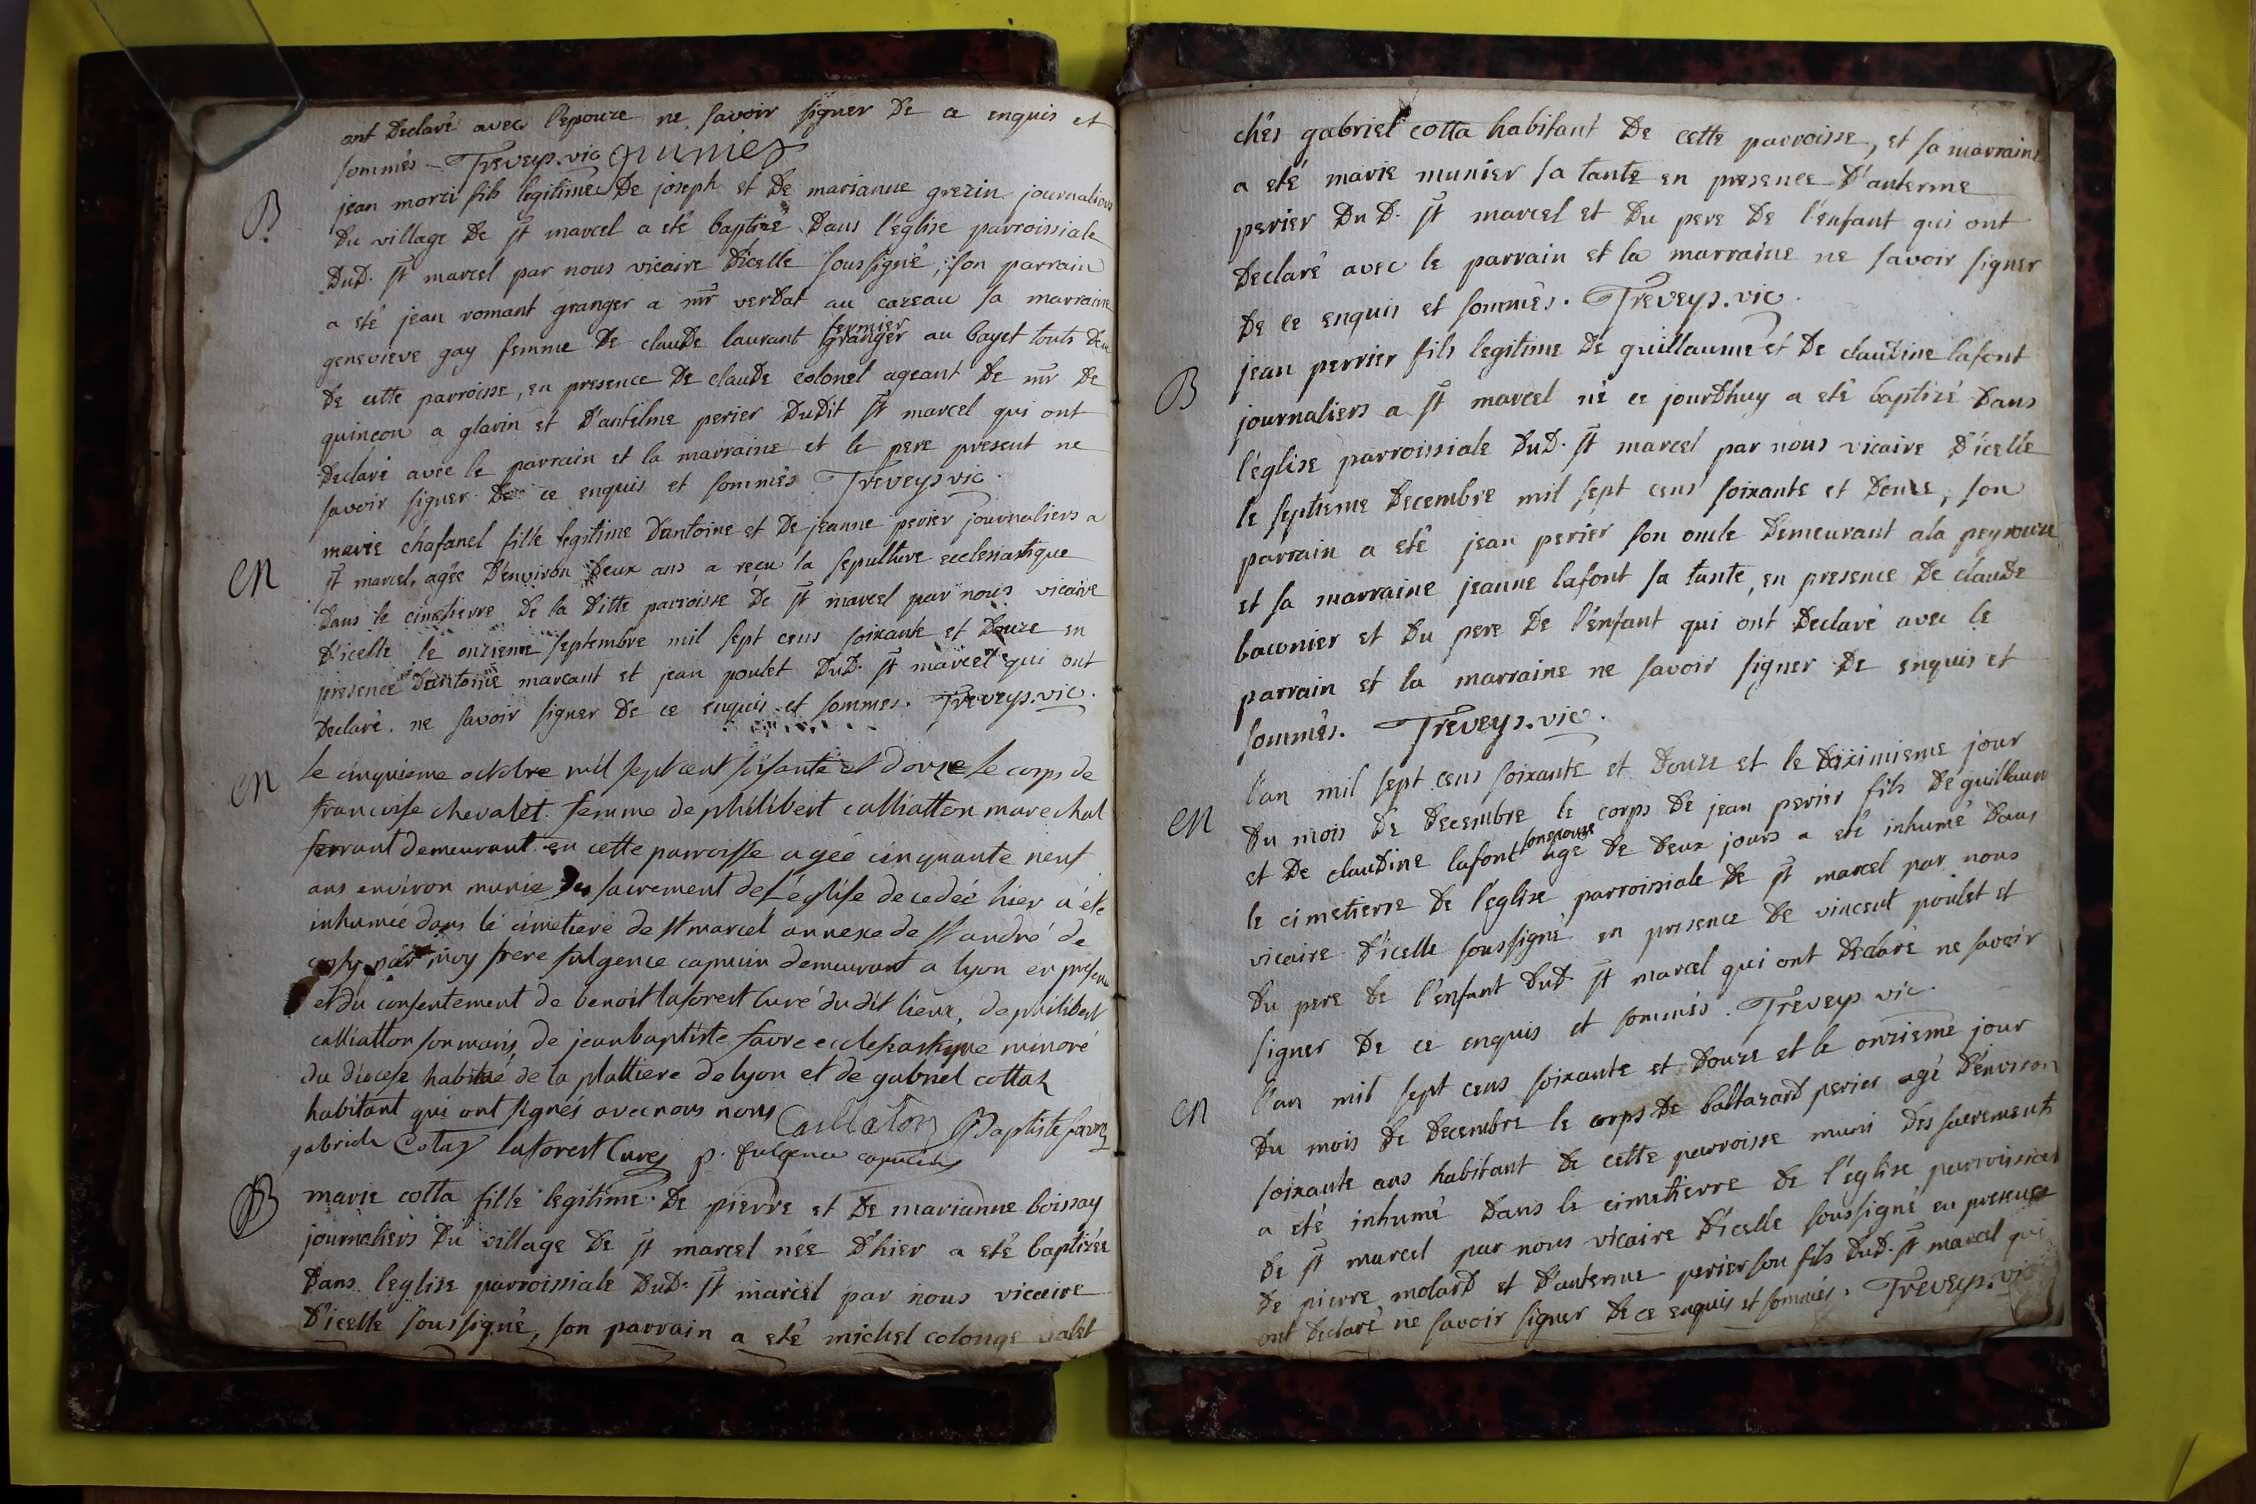 ont declaré avec l'epouze ne savoir signer de ce enquis et
sommés Treveys. vic munier
B
jean morci fils legitime de joseph et de marianne grezin journaliers
du village de st marcel a eté baptizé dans l'église parroissiale
dud. st marcel par nous vicaire d'icelle soussigné, son parrain
a eté jean romant granger a mr verdat au cazeau sa marraine
genevieve gay femme de claude laurant granger fermier au bayet touts deu
de cette parroisse, en presence de claude colonel ageant de mr de
quincon a glavin et d'antelme perier dudit st marcel qui ont
declaré avec le parrain et la marraine et le pere present ne
savoir signer de ce enquis et sommés Treveys vic.
en
marie chafanel fille legitime d'antoine et de jeanne perier journaliers a
st marcel, agée d'environ deux ans a reçu la sepulture ecclesiastique
dans le cimetierre de la ditte parroisse de st marcel par nous vicaire
d'icelle le onzieme septembre mil sept cens soixante et douze en
presence d'antoine marcant et jean poulet dud. st marcel qui ont
declaré ne savoir signer de ce enquis et sommes. Treveys. vic.
en
le cinquieme octobre mil sept cent soisante et douze le corps de
francoise chevalet femme de philibert calliatton marechal
ferrant demeurant en cette parroisse agée cinquante neuf
ans environ munie des sacrement de L'eglise decedée hier a été
inhumée dans le cimetiere de st marcel annexe de st andré de
corsy par moy frere fulgence capucin demeurant a lyon en presence
et du consentement de benoit laforest Curé dudit lieux, de philibert
calliatton son mari, de jean baptiste favre ecclesiastique minoré
du diocese habitué de la plattiere de lyon et de gabriel cottaz
habitant qui ont signés avec nous nous Cailleton Baptiste favre
gabriele Cotaz laforest Curé p. fulgence capucin
B
marie cotta fille legitime de pierre et de marianne boissay
journaliers du village de st marcel née d'hier a eté baptizée
dans l'eglize parroissiale dud. st marcel par nous vicaire
d'icelle soussigné, son parrain a eté michel colonge valet
chés gabriel cotta habitant de cette parroisse, et sa marraine
a eté marie munier sa tante en presence d'anterme
perier du d. st marcel et du pere de l'enfant qui ont
declaré avec le parrain et la marraine ne savoir signer
de ce enquis et sommés. Treveys. vic.
B
jean perrier fils legitime de guillaume et de claudine lafont
journaliers a st marcel né ce jourdhuy a eté baptizé dans
l'églize parroissiale dud. st marcel par nous vicaire d'icelle
le septieme decembre mil sept cens soixante et douze, son
parrain a eté jean perier son oncle demeurant a la peyrouze
et sa marraine jeanne lafont sa tante, en presence de claude
baconier et du pere de l'enfant qui ont declaré avec le
parrain et la marraine ne savoir signer de enquis et
sommés. Treveys. vic.
en
l'an mil sept cens soixante et douze et le diximieme jour
du mois de decembre le corps de jean perier fils de guillaume
et de claudine lafont son epouze age de deux jours a eté inhumé dans
le cimetierre de l'église parroissiale de st marcel par nous
vicaire d'icelle soussigné en presence de vincent poulet et
du pere de l'enfant dud. st marcel qui ont declaré ne savoir
signer de ce enquis et sommés. Treveys vic.
en
l'an mil sept cens soixante et douze et le onzieme jour
du mois de decembre le corps de baltazard perier agé d'environ
soixante ans habitant de cette parroisse muni des sacrements
a eté inhumé dans le cimetierre de l'église parroissiale
de st marcel par nous vicaire d'icelle soussigné en presence
de pierre molard et d'anterme perier son fils dud. st marcel qui
ont declaré ne savoir signer de ce enquis et sommés. Treveys. vic